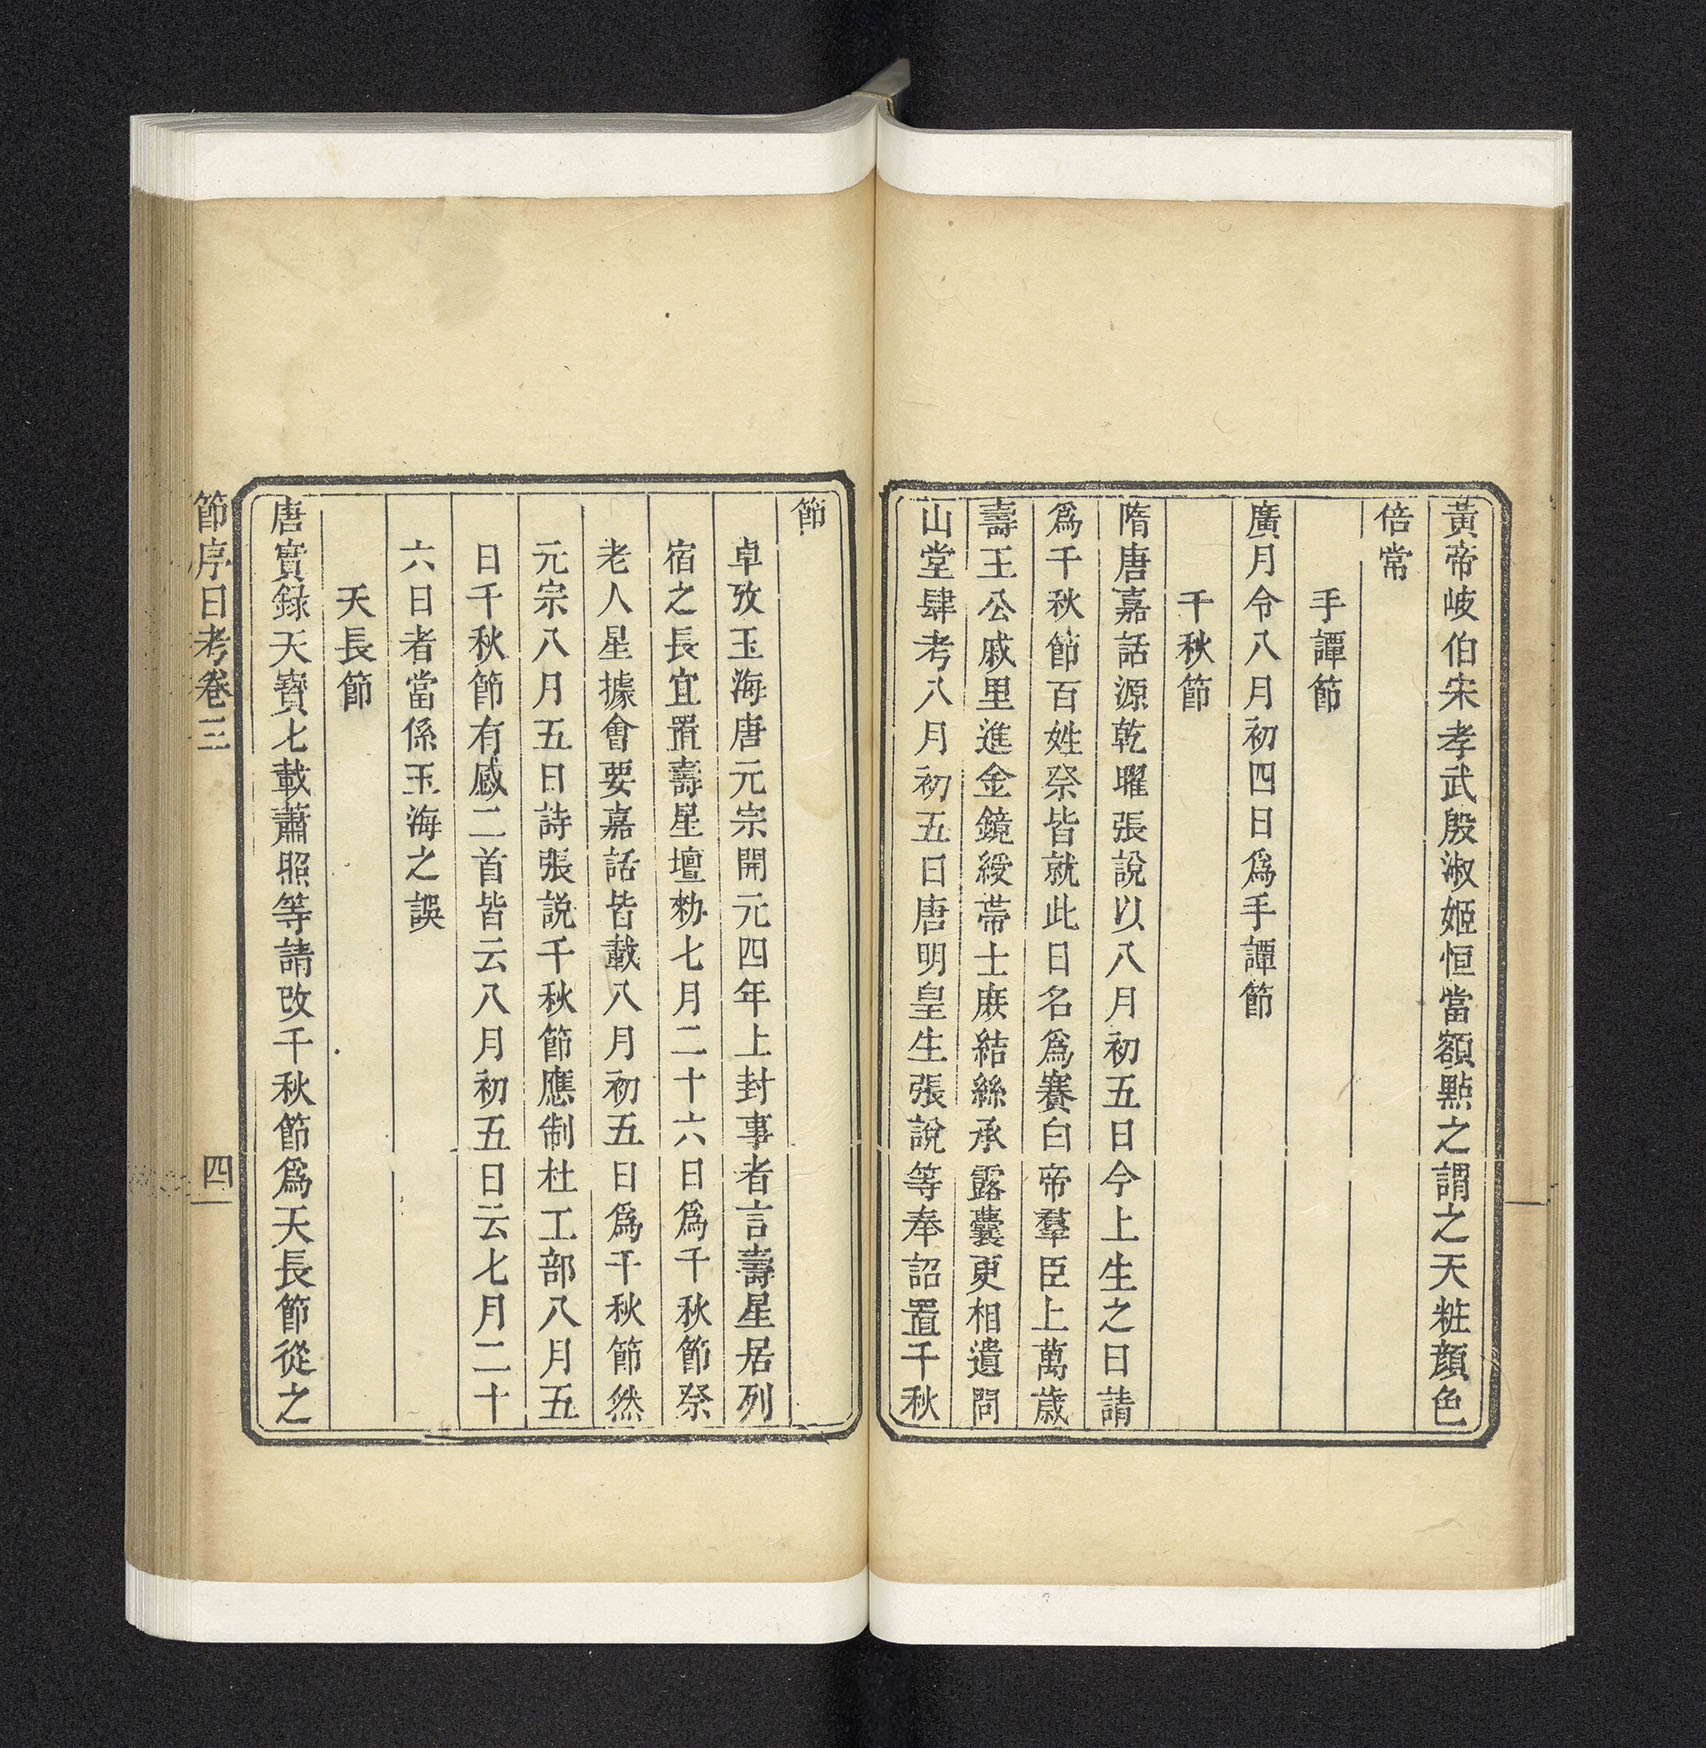 黃帝岐伯宋孝武殷淑姬恒當額點之謂之天粧顏色
倍常
手譚節
廣月令八月初四日爲手譚節
千秋節
隋唐嘉話源乾曜張說以八月初五日今上生之日請
爲千秋節百姓祭皆就此日名爲賽白帝羣臣上萬歲
壽王公戚里進金鏡綬帶士庶結絲承露囊更相遺問
山堂肆考八月初五日唐明皇生張說等奉詔置千秋
節
卓攷玉海唐元宗開元四年上封事者言壽星居列
宿之長宜置壽星壇勑七月二十六日爲千秋節祭
老人星據會要嘉話皆載八月初五日爲千秋節然
元宗八月五日詩張說千秋節應制杜工部八月五
日千秋節有感二首皆云八月初五日云七月二十
六日者當係玉海之誤
天長節
唐實錄天寶七載蕭照等請改千秋節爲天長節從之
節序日考卷三
四